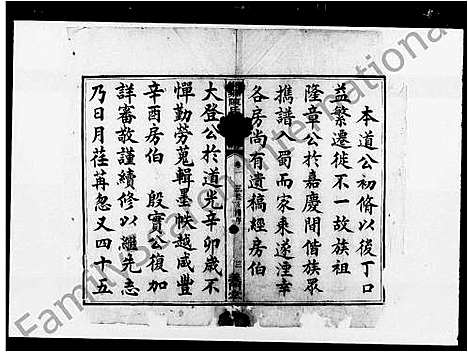 本道公初脩以後丁口
益繁遷徙不一故族祖
隆章公於嘉慶間偕族眾
擕譜入蜀而家乘遂湮幸
各房尚有遺稿經房伯
大登公於道光辛卯歲不
憚勤勞蒐輯墨帙越咸豐
辛酉房伯 殷實公復加
詳審敬謹續修以繼先志
乃日月荏苒忽又四十五